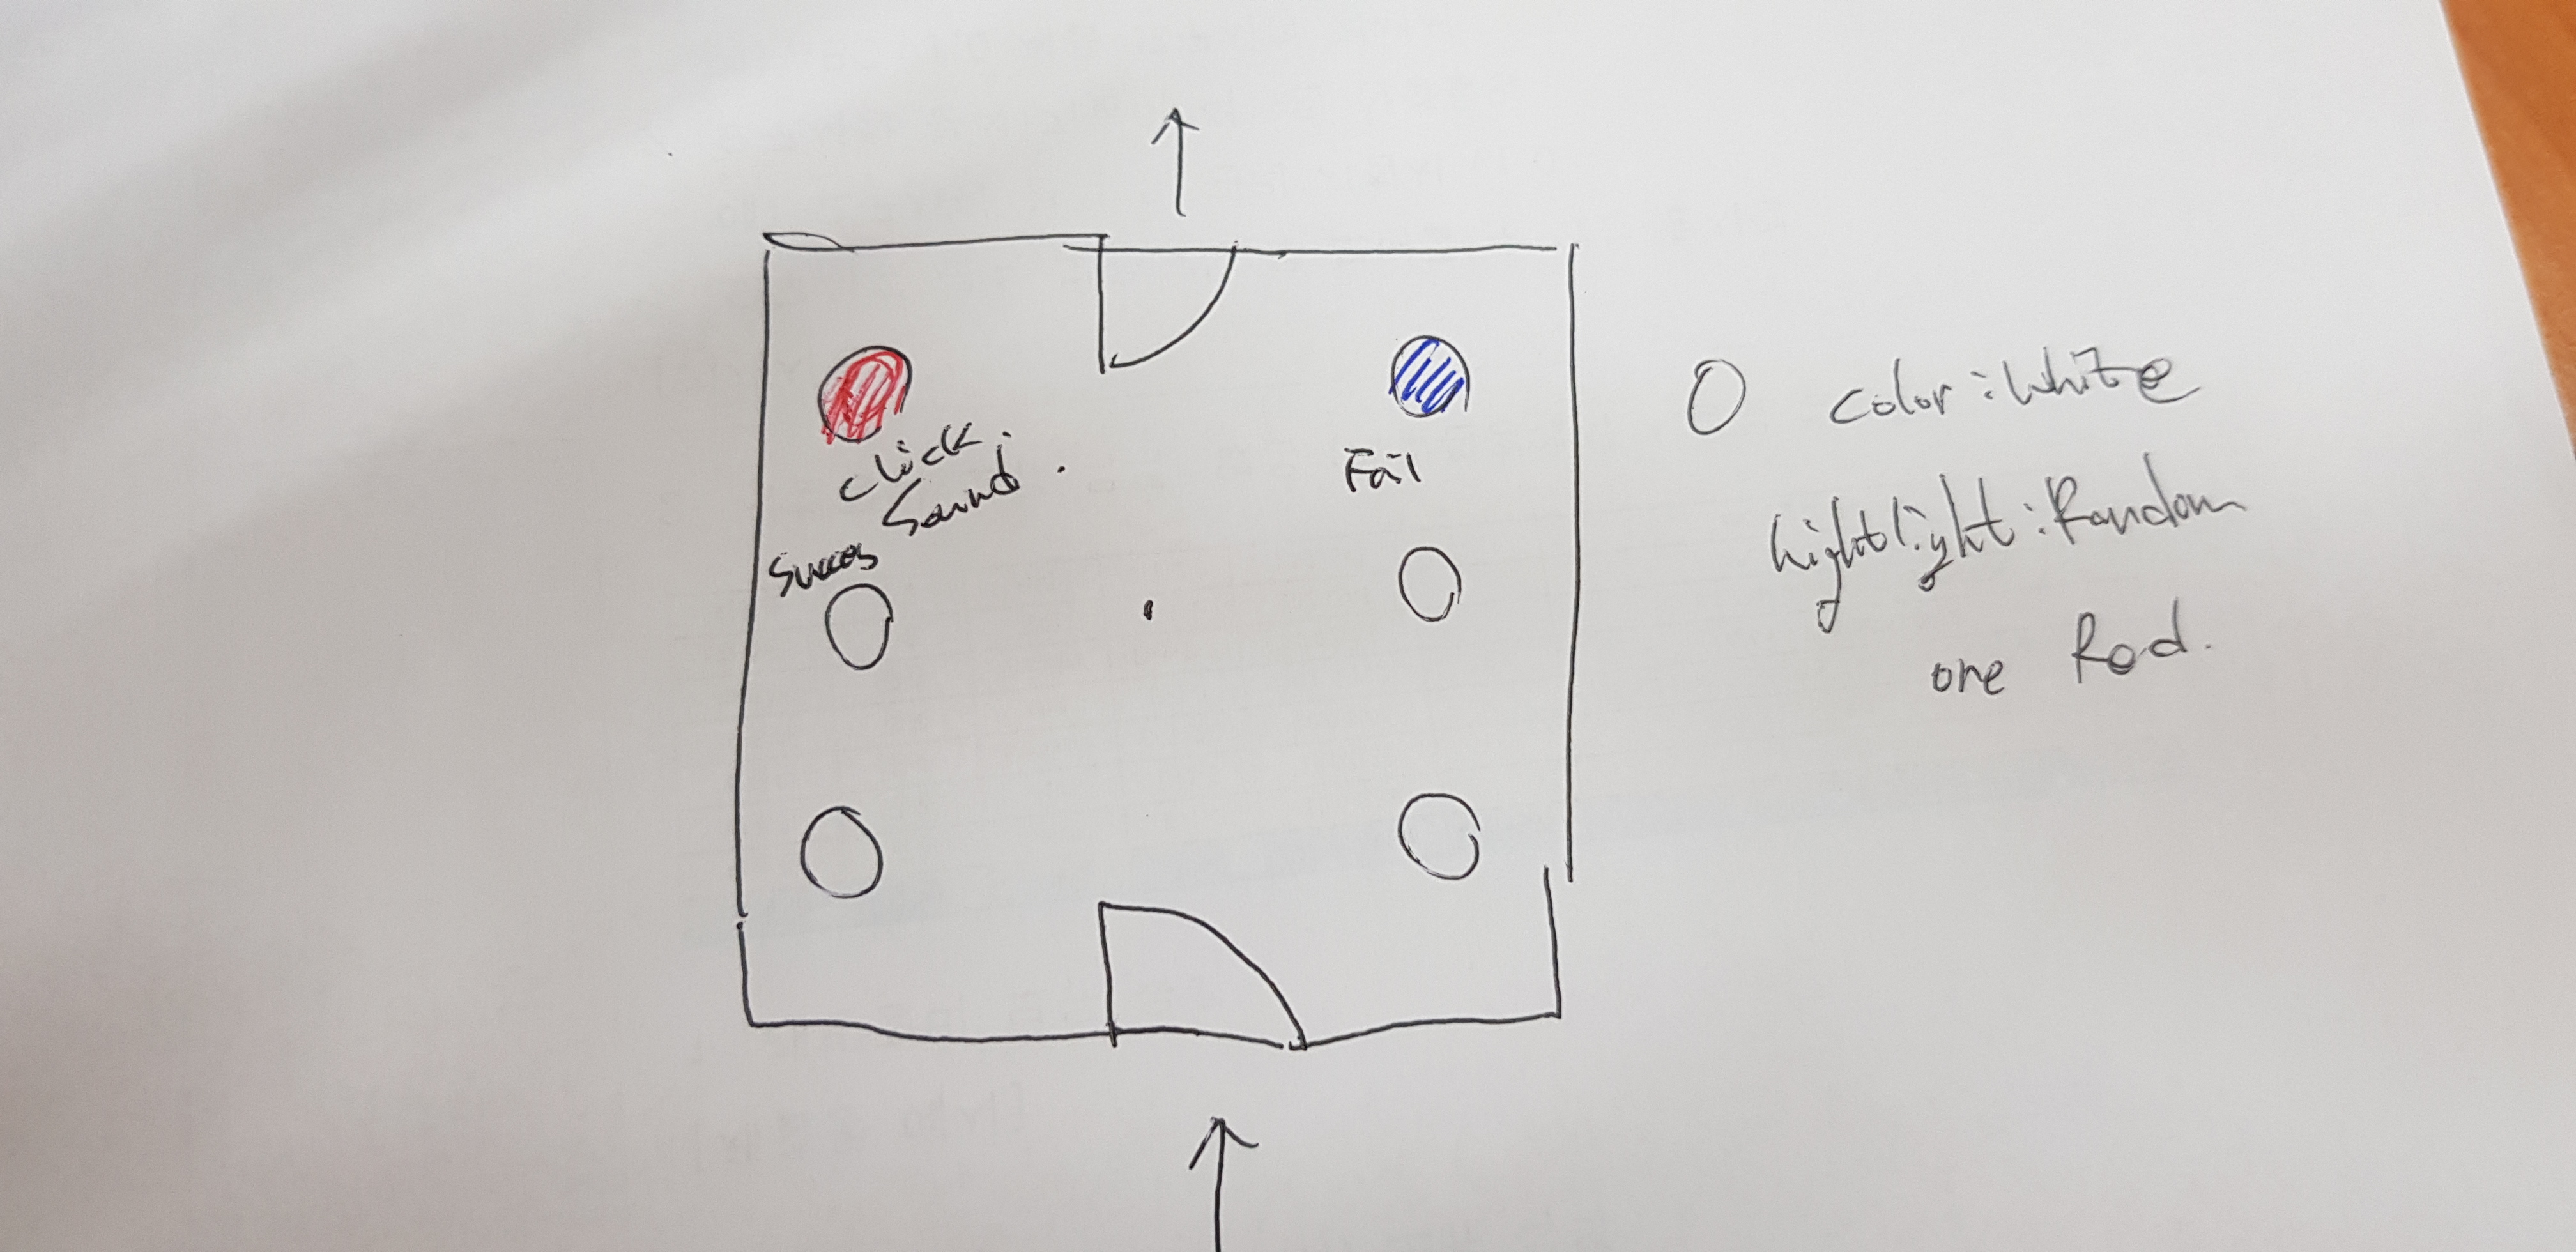 Click
Sound.
Fail
Color : White
highlight : Random
one Rod.